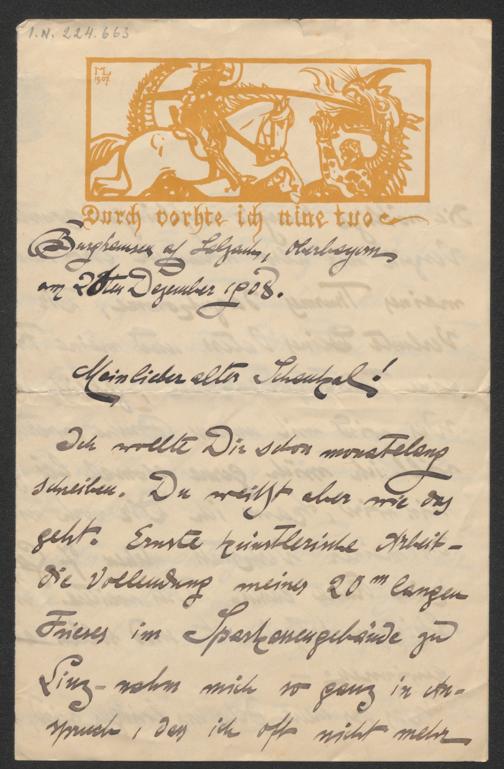 I.N. 224.663
ML
1907
Durch vorhte ich nine tuo
Burghausen a/ Salzach, Oberbayern
am 28ten Dezember 1908.
Mein lieber alter Schaukal!
Ich wollte Dir schon monatelang
schreiben. Du weißt aber wie das
geht. Ernste künstlerische Arbeit –
die Vollendung meines 20 m langen
Frieses im Sparkassengebäude zu
Linz – nahm mich so ganz in An-
spruch, das ich oft nicht mehr